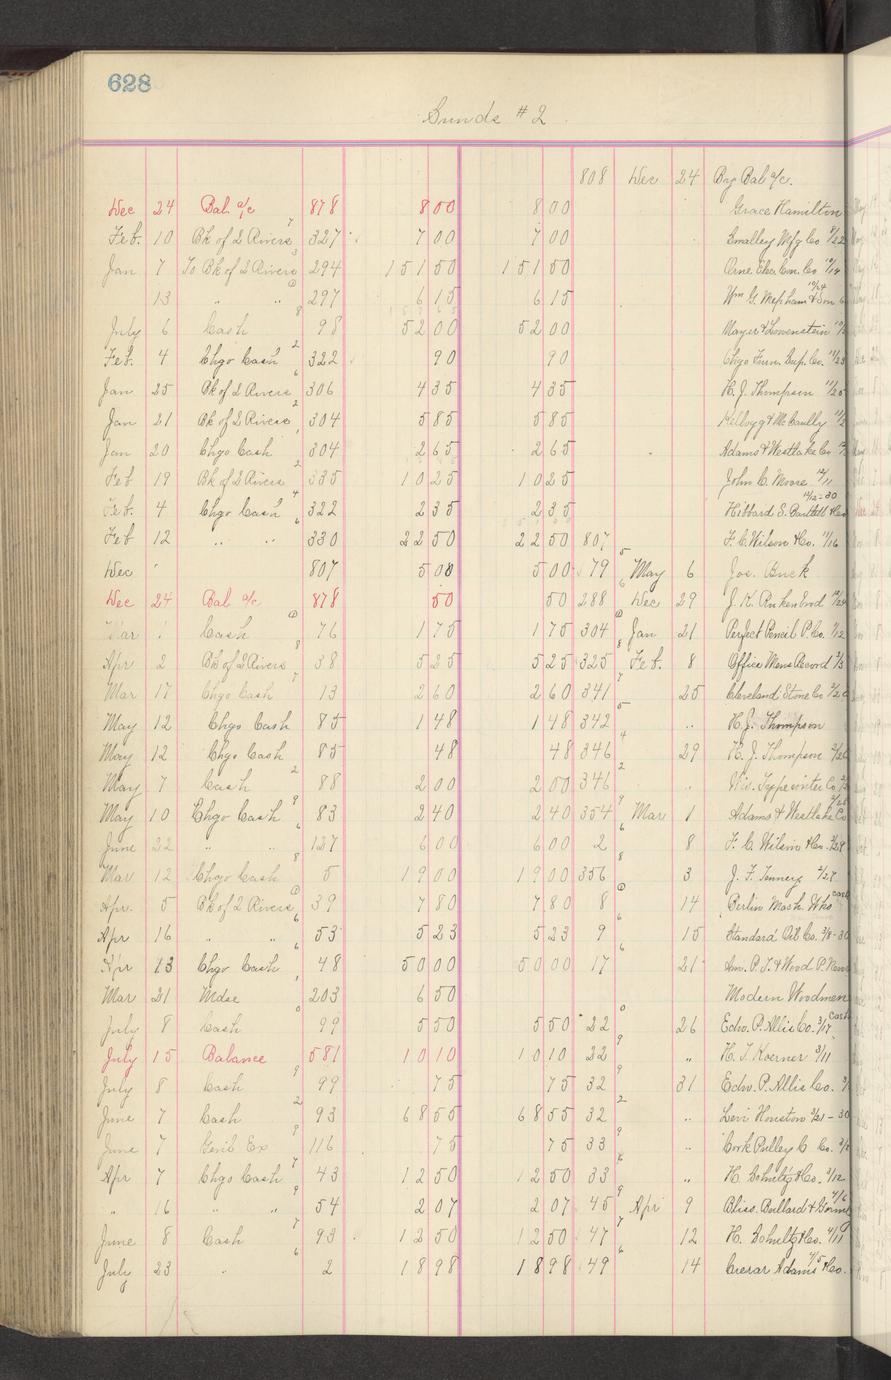 628
Sunds # 2
808 Dec 24 By Bal a/c.
Dec 24 Bal. a/c 878 8 00 8 00 Grace Hamilton
Feb. 10 Bk of 2 Rivers 7 327 7 00 7 00 Smalley Mfg Co
Jan 7 To Bk of 2 Rivers 3 294 151 50 151 50
13 " " 297 6 15 6 15 Wm G. Mepham & Son
July 6 Cash 8 98 52 00 52 00 Mayer & Lowenstein
Feb. 4 Chgo Cash 2 322 90 90 Chgo Furn. Sup. Co. 11/23
Jan 25 Bk of 2 Rivers 6 306 4 35 4 35 H. J. Thompson
Jan 21 Bk of 2 Rivers 2 304 5 85 5 85 Kellogg & McCaully
Jan 20 Chgo Cash 1 304 2 65 2 65 Adams & Westlake Co
Feb 19 Bk of 2 Rivers 2 335 10 25 10 25 John C. Moore 12/11
Feb. 4 Chgo Cash 4 322 2 35 2 35 Hibbard S. Bartlett & Co 12/12-30
Feb 12 " " 6 330 22 50 22 50 807 F. C. Wilson & Co. 11/16
Dec 807 5 00 5 00 79 5 May 6 Jos. Buck
Dec 24 Bal a/c 878 50 50 288 6 Dec 29
Mar 1 Cash 76 1 75 1 75 304 Jan 21 Perfect Pencil P. Co. 1/12
Apr 2 Bk of 2 Rivers 8 38 5 25 5 25 325 8 Feb. 8 Office Mens Record 2/5
Mar 17 Chgo Cash 7 13 2 60 2 60 341 7 25 Cleveland Stone Co
May 12 Chgo Cash 85 1 48 1 48 342 5 " H. J. Thompson
May 12 Chgo Cash 85 48 48 346 4 29 H. J. Thompson
May 7 Cash 2 88 2 00 2 00 346 2 " Wis. Typewriter Co
May 10 Chgo Cash 9 83 2 40 2 40 354 9 Mar 1 Adams & Westlake Co
June 22 " " 6 127 6 00 6 00 2 6 8 F. C. Wilson & Co.
Mar 12 Chgo Cash 8 5 19 00 19 00 356 8 3 J. F. Tenney 2/27
Apr. 5 Bk of 2 Rivers 39 7 80 7 80 8 14 Berlin Mach. Wks
Apr 16 " " 6 53 5 23 5 23 9 6 15 Standard Oil Co. 3/8-30
Apr 13 Chgo Cash 48 50 00 50 00 17 6 21
Mar 21 Mdse 1 203 6 50 Modern Woodmen
July 8 Cash 0 99 5 50 5 50 22 0 26 Edw. P. Allis Co. 3/17
July 15 Balance 581 10 10 10 10 22 9 " H. J. Koerner 3/11
July 8 Cash 9 99 75 75 32 9 31 Edw. P. Allis Co.
June 7 Cash 2 93 68 55 68 55 32 2 " Levi Houston 3/21-30
June 7 Genl Ex 9 116 75 75 33 9 " Cork Pulley C Co.
Apr 7 Chgo Cash 7 43 12 50 12 50 33 " H. Schultz & Co. 3/12
" 16 " " 9 54 2 07 2 07 45 9 Apr 9 Bliss. Bullard & Gormly 4/6
June 8 Cash 7 93 12 50 12 50 47 7 12 H. Schultz & Co. 4/11
July 23 " 6 2 18 98 18 98 49 6 14 Caesar Adams & Co. 4/5